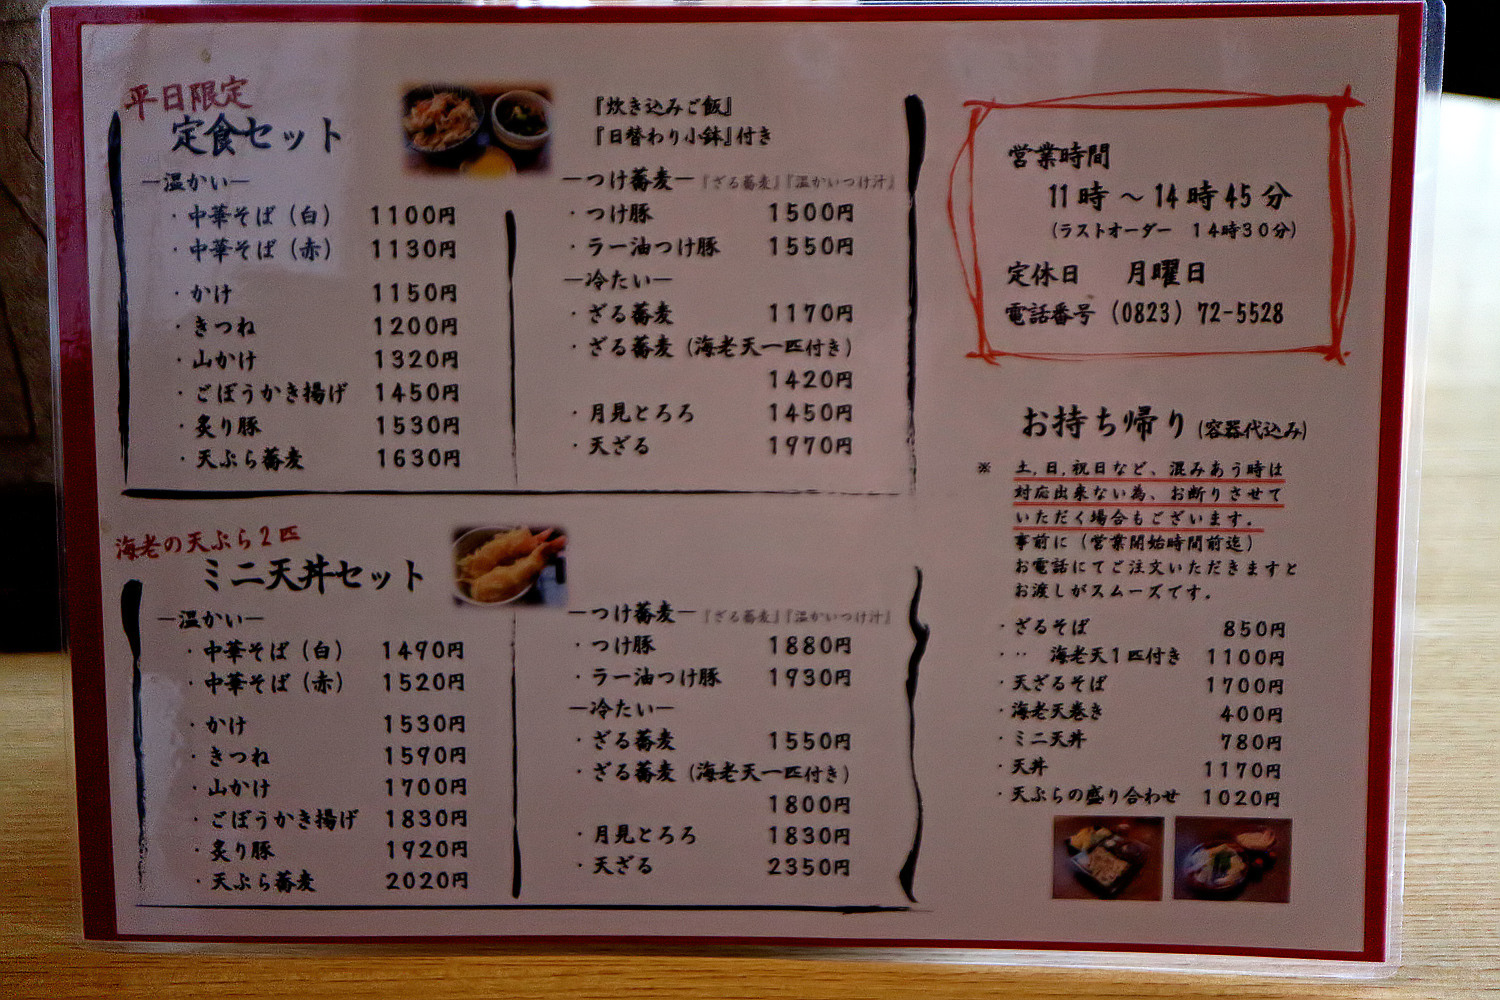 平日限定
定食セット
『炊き込みご飯』
『日替わり小鉢』付き
―温かい―
・中華そば（白） 1100円
・中華そば（赤） 1130円
・かけ 1150円
・きつね 1200円
・山かけ 1320円
・ごぼうかき揚げ 1450円
・炙り豚 1530円
・天ぷら蕎麦 1630円
―つけ蕎麦―『ざる蕎麦』『温かいつけ汁』
・つけ豚 1500円
・ラー油つけ豚 1550円
―冷たい―
・ざる蕎麦 1170円
・ざる蕎麦（海老天一匹付き）
1420円
・月見とろろ 1450円
・天ざる 1970円
海老の天ぷら2匹
ミニ天丼セット
―温かい―
・中華そば（白） 1490円
・中華そば（赤） 1520円
・かけ 1530円
・きつね 1590円
・山かけ 1700円
・ごぼうかき揚げ 1830円
・炙り豚 1920円
・天ぷら蕎麦 2020円
―つけ蕎麦―『ざる蕎麦』『温かいつけ汁』
・つけ豚 1880円
・ラー油つけ豚 1930円
―冷たい―
・ざる蕎麦 1550円
・ざる蕎麦（海老天一匹付き）
1800円
・月見とろろ 1830円
・天ざる 2350円
営業時間
11時～14時45分
（ラストオーダー 14時30分）
定休日 月曜日
電話番号（0823）72-5528
お持ち帰り（容器代込み）
※ 土，日，祝日など、混みあう時は
対応出来ない為、お断りさせて
いただく場合もございます．
事前に（営業開始時間前迄）
お電話にてご注文いただきますと
お渡しがスムーズです．
・ざるそば 850円
・‥ 海老天1匹付き 1100円
・天ざるそば 1700円
・海老天巻き 400円
・ミニ天丼 780円
・天丼 1170円
・天ぷらの盛り合わせ 1020円